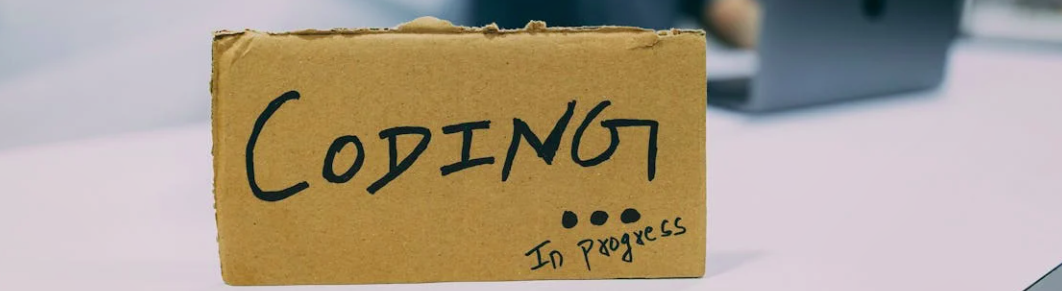 CODING
...
In progress